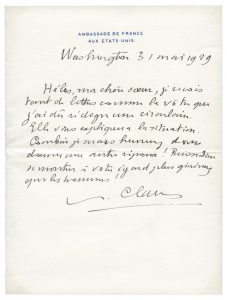 AMBASSADE DE FRANCE
AUX ETATS-UNIS.
Washington 31 mai 1929
Hélas, ma chère sœur, je reçois
tant de lettres comme la vôtre que
j'ai dû rédiger une circulaire.
Elle vous expliquera la situation.
Combien je serais heureux de vous
donner une autre réponse! Puisse Dieu
se montrer à votre égard plus généreux
que les hommes